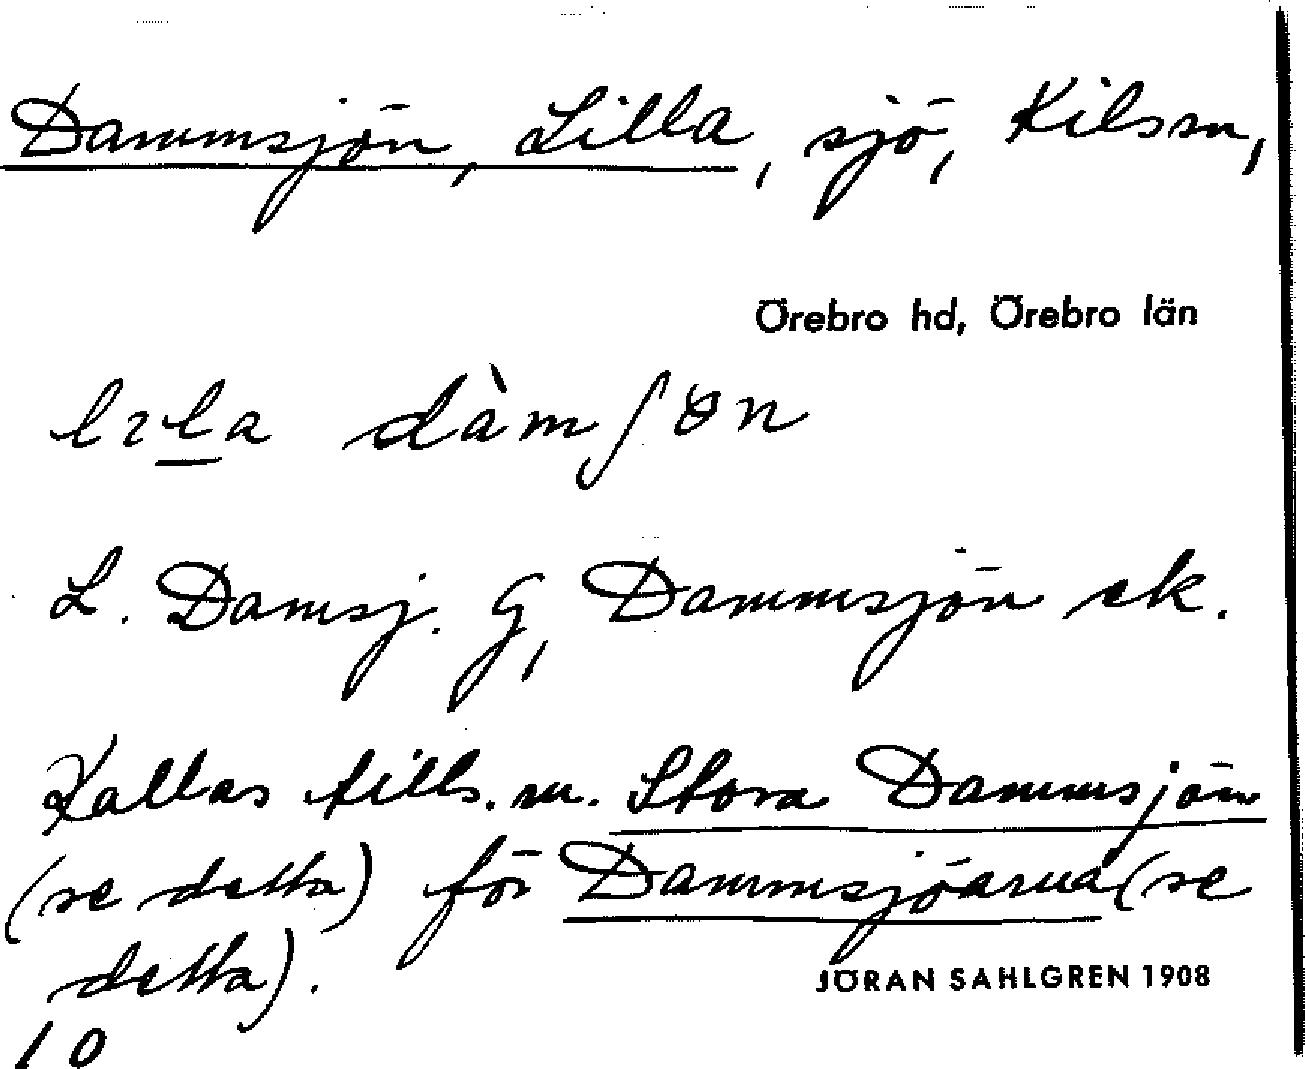 Dammsjön, Lilla, sjö, Kilssn,
Örebro hd, Örebro län
lɩla dàmʃɵn
L. Damsj. G, Dammsjön ek.
Kallas tills. m. Stora Dammsjön
(se detta) för Dammsjöarna (se
detta).
JÖRAN SAHLGREN 1908
10